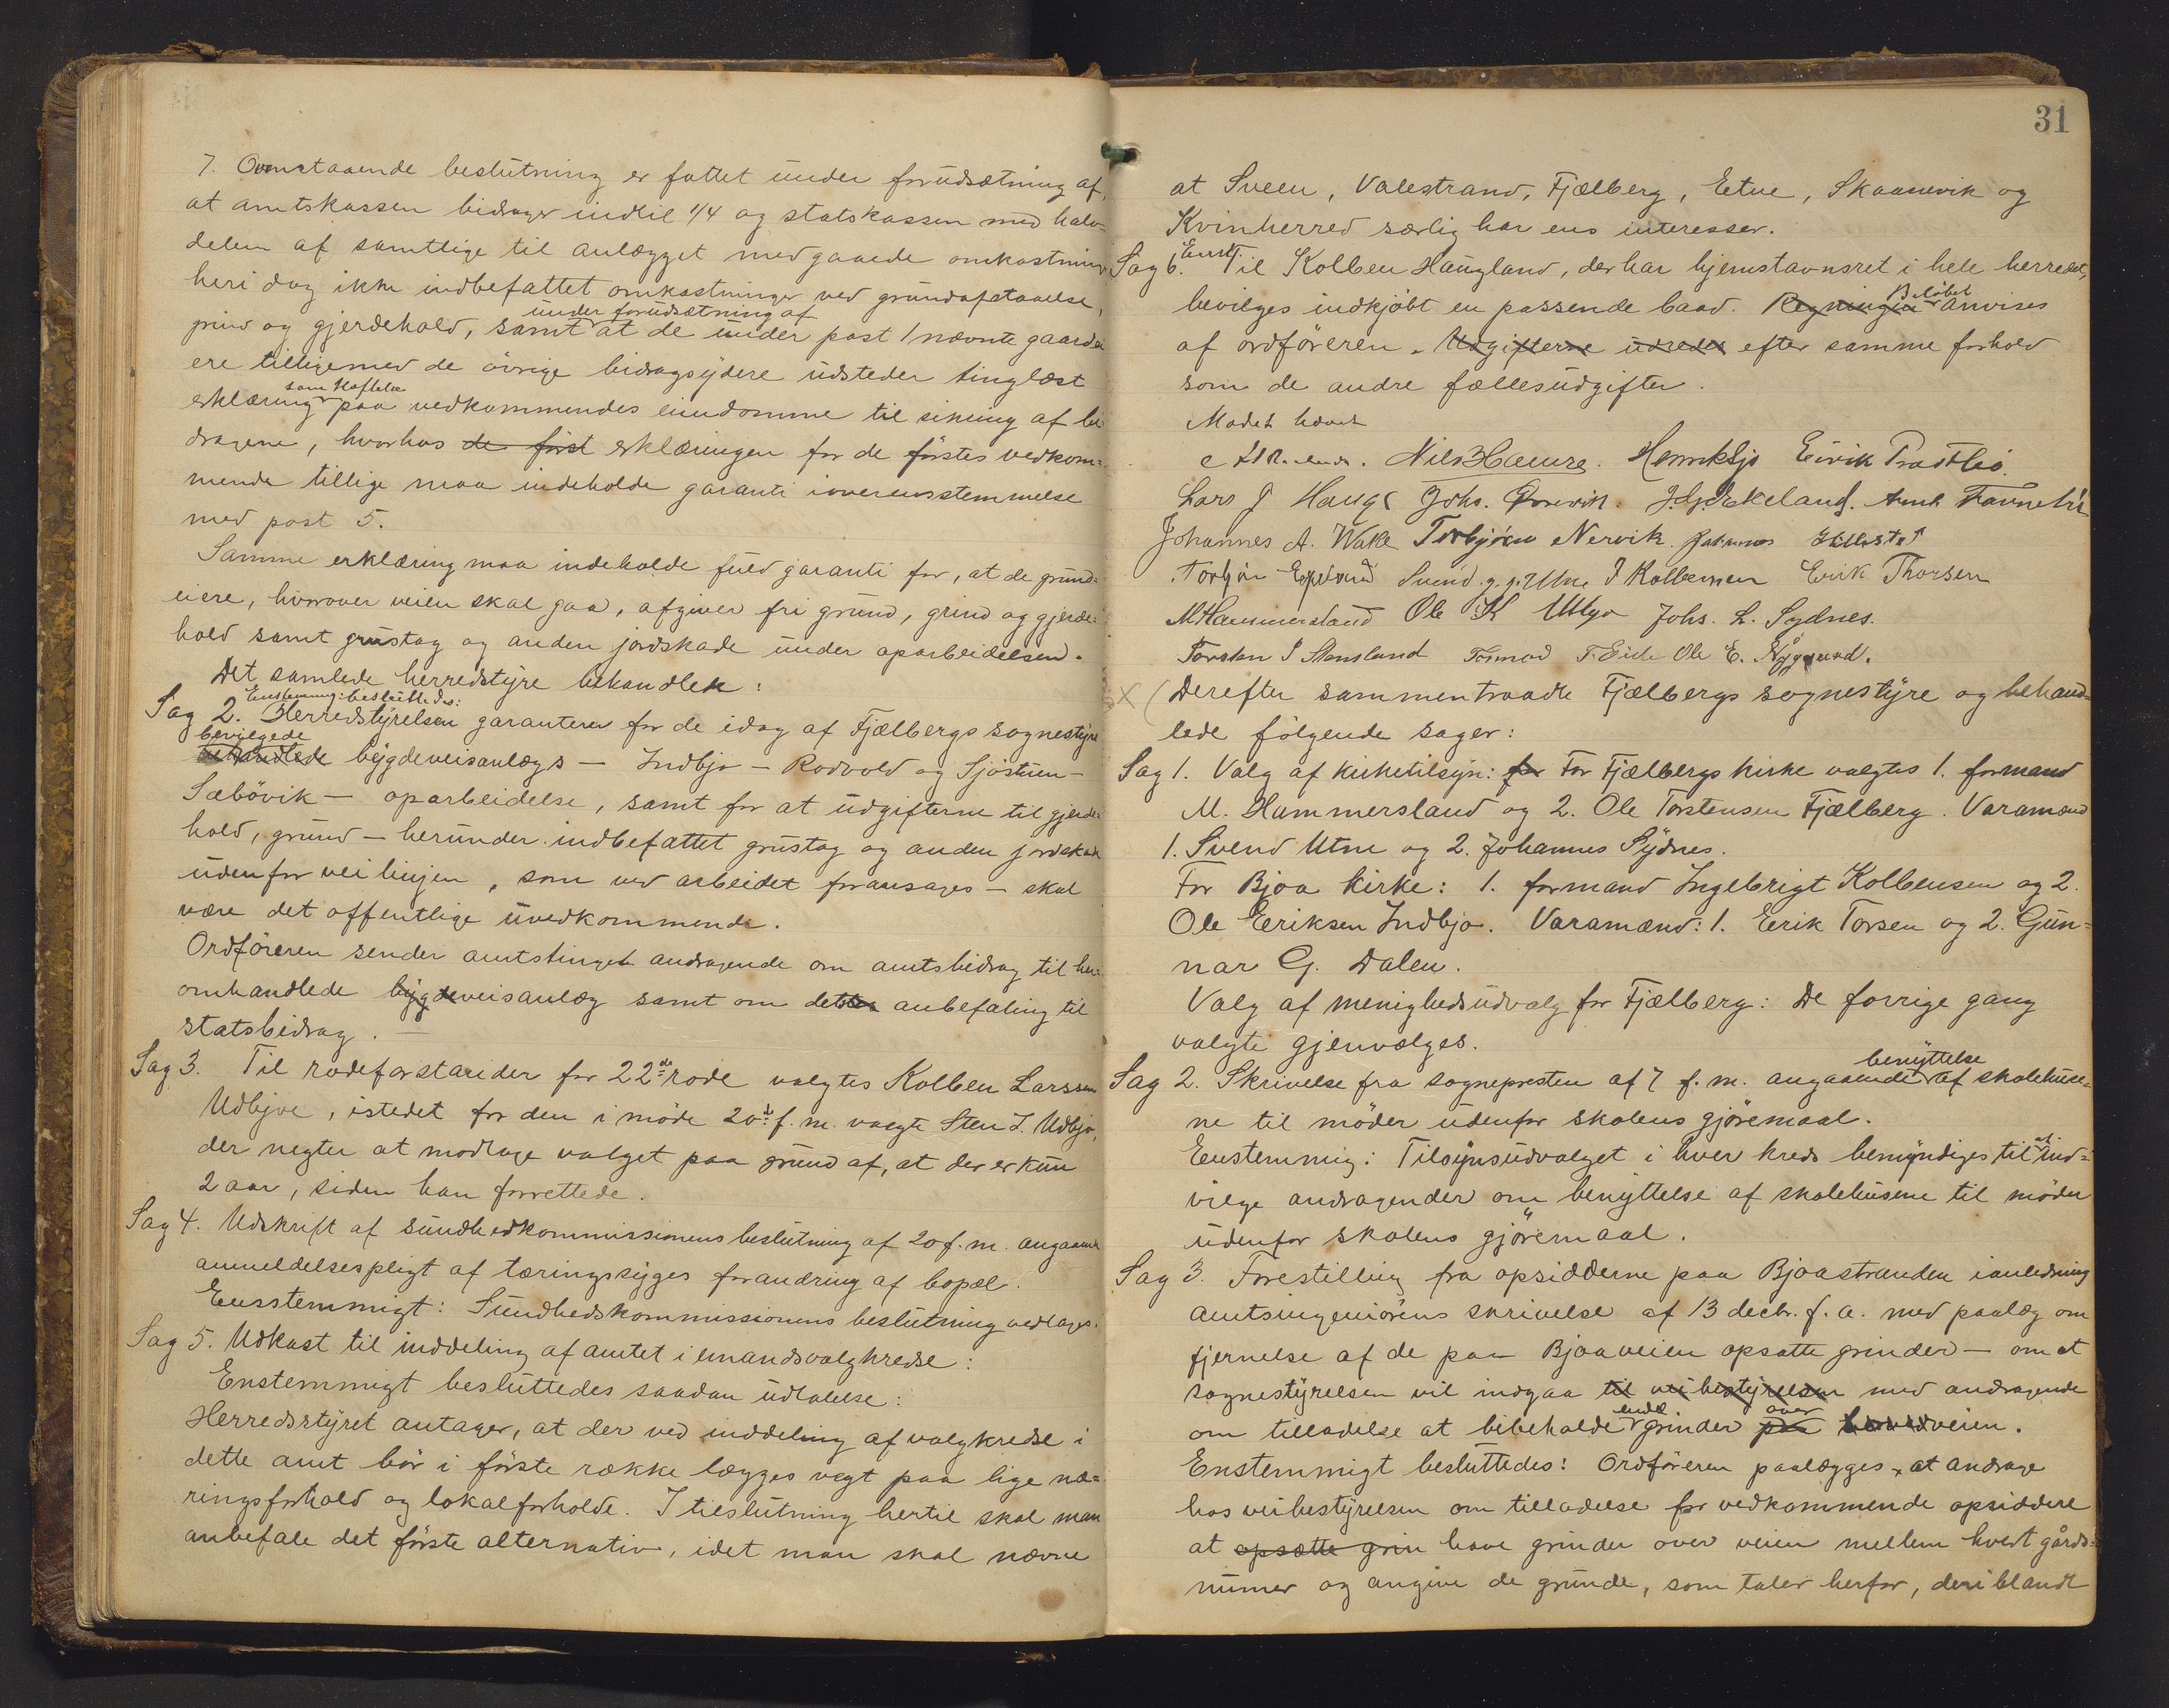 7. Ovenstaaende beslutning er fattet under forudsætning af,
at amtskassen bidrager indtil 1/4 og statskassen med halv-
delen af samtlige til anlægget medgaaende omkostninger
heri dog ikke indbefattet omkostninger ved grundafstaaelse,
under forudsætning af
grind og gjerdehold, samt at de under post 1 nævnte gaardei
ere tilligemed de övrige bidragsydere udsteder tinglæst
som Heftelse
erklæring paa vedkommendes eiendomme til sikring af bi-
dragene, hvorhos de först erklæringen for de förstes vedkom-
mende tillige maa indeholde garanti i overensstemmelse
med post 5.
Samme erklæring maa indeholde fuld garanti for, at de grund-
eiere, hvorover veien skal gaa, afgiver fri grund, grind og gjerde-
hold samt grustag og anden jordskade under oparbeidelsen.
Det samlede herredstyre behandlede:
Enstemmig besluttedes:
Sag 2. Herredstyrelsen garanterer for de idag af Fjælbergs sognestyre
bevilgede
behandlede bygdeveisanlægs — Indbjo — Rodvold og Sjöstuen —
Sæbövik — oparbeidelse, samt for at udgifterne til gjerde-
hold, grund — herunder indbefattet grustag og anden jordskade
udenfor veilinjen, som ved arbeidet foraarsages — skal
være det offentlige uvedkommende.
Ordföreren sender amtstinget andragende om amtsbidrag til her-
omhandlede bygdeveisanlæg samt om dettes anbefaling til
statsbidrag. —
Sag 3. Til rodeforstander for 22de rode valgtes Kolben Larssen
Udbjoe, istedet for den i möde 20de f. m. valgte Sten J. Udbjo,
der negter at modtage valget paa grund af, at der er kun
2 aar, siden han forrettede.
Sag 4. Udskrift af sundhedkommissionens beslutning af 20 f. m. angaaende
anmeldelsespligt af tæringssyges forandring af bopæl.
Eensstemmigt: Sundhedskommissionens beslutning vedtages.
Sag 5. Udkast til inddeling af amtet i enmandsvalgkredse:
Enstemmigt besluttedes saadan udtalelse:
Herredsstyret antager, at der ved inddeling af valgkredse i
dette amt bör i förste række lægges vegt paa lige næ-
ringsforhold og lokalforholde. I tilslutning hertil skal man
anbefale det förste alternativ, idet man skal nævne
31
at Sveen, Valestrand, Fjælberg, Etne, Skaanevik og
Kvinherred særlig har ens interesser.
Enst.
Sag 6. Til Kolben Haugland, der har hjemstavnsret i hele herredet,
Belöbet
bevilges indkjöbt en passende baad. Regningen anvises
af ordföreren. Udgifterne udredes efter samme forhold
som de andre fællesudgifter.
Mödet hævet
Nils Haure. Henrik Sjo Eirik Tradthio.
Lars J Hauge Johs. J. G. Ekeland.
Johannes A. Wake Torbjörn Nervik. Johannes
Svend J Kolbensen Eirik Thorsen
M Hammersland Ole K Utbjo Johs. L. Sydnes.
Torsten J Stensland Tormod T. Eide Ole E. Nygaard.
Derefter sammentraadte Fjælbergs sognestyre og behand-
lede fölgende sager:
Sag 1. Valg af kirketilsyn: for For Fjælbergs kirke valgtes 1. formand
M. Hammersland og 2. Ole Torstensen Fjælberg. Varamænd
1. Svend Utne og 2. Johannes Sydnes.
For Bjoa kirke: 1. formand Ingebrigt Kolbensen og 2.
Ole Eeriksen Indbjo. Varamænd: 1. Eerik Torsen og 2. Gun-
nar G. Dalen.
Valg af menighedsudvalg for Fjælberg: De forrige gang
valgte gjenvælges.
benyttelse
Sag 2. Skrivelse fra sognepresten af 7 f. m. angaaende af skolehuse-
ne til möder udenfor skolens gjöremaal.
Eenstemmig: Tilsynsudvalget i hver kreds bemyndiges til at ind-
vilge andragender om benyttelse af skolehusene til möder
udenfor skolens gjöremaal.
Sag 3. Forestilling fra opsidderne paa Bjoastranden i anledning
amtsingeniörens skrivelse af 13 decbr. f. a. med paalæg om
fjernelse af de paa Bjoaveien opsatte grinder — om at
sognestyrelsen vil indgaa til veibestyrelsen med andragende
endel over
om tilladelse at bibeholde grinder paa hovedveien.
Enstemmigt besluttedes: Ordföreren paalægges at andrage
hos veibestyrelsen om tilladelse for vedkommende opsiddere
at opsætte grin have grinder over veien mellem hvert gårds-
numer og angive de grunde, som taler herfor, deriblandt